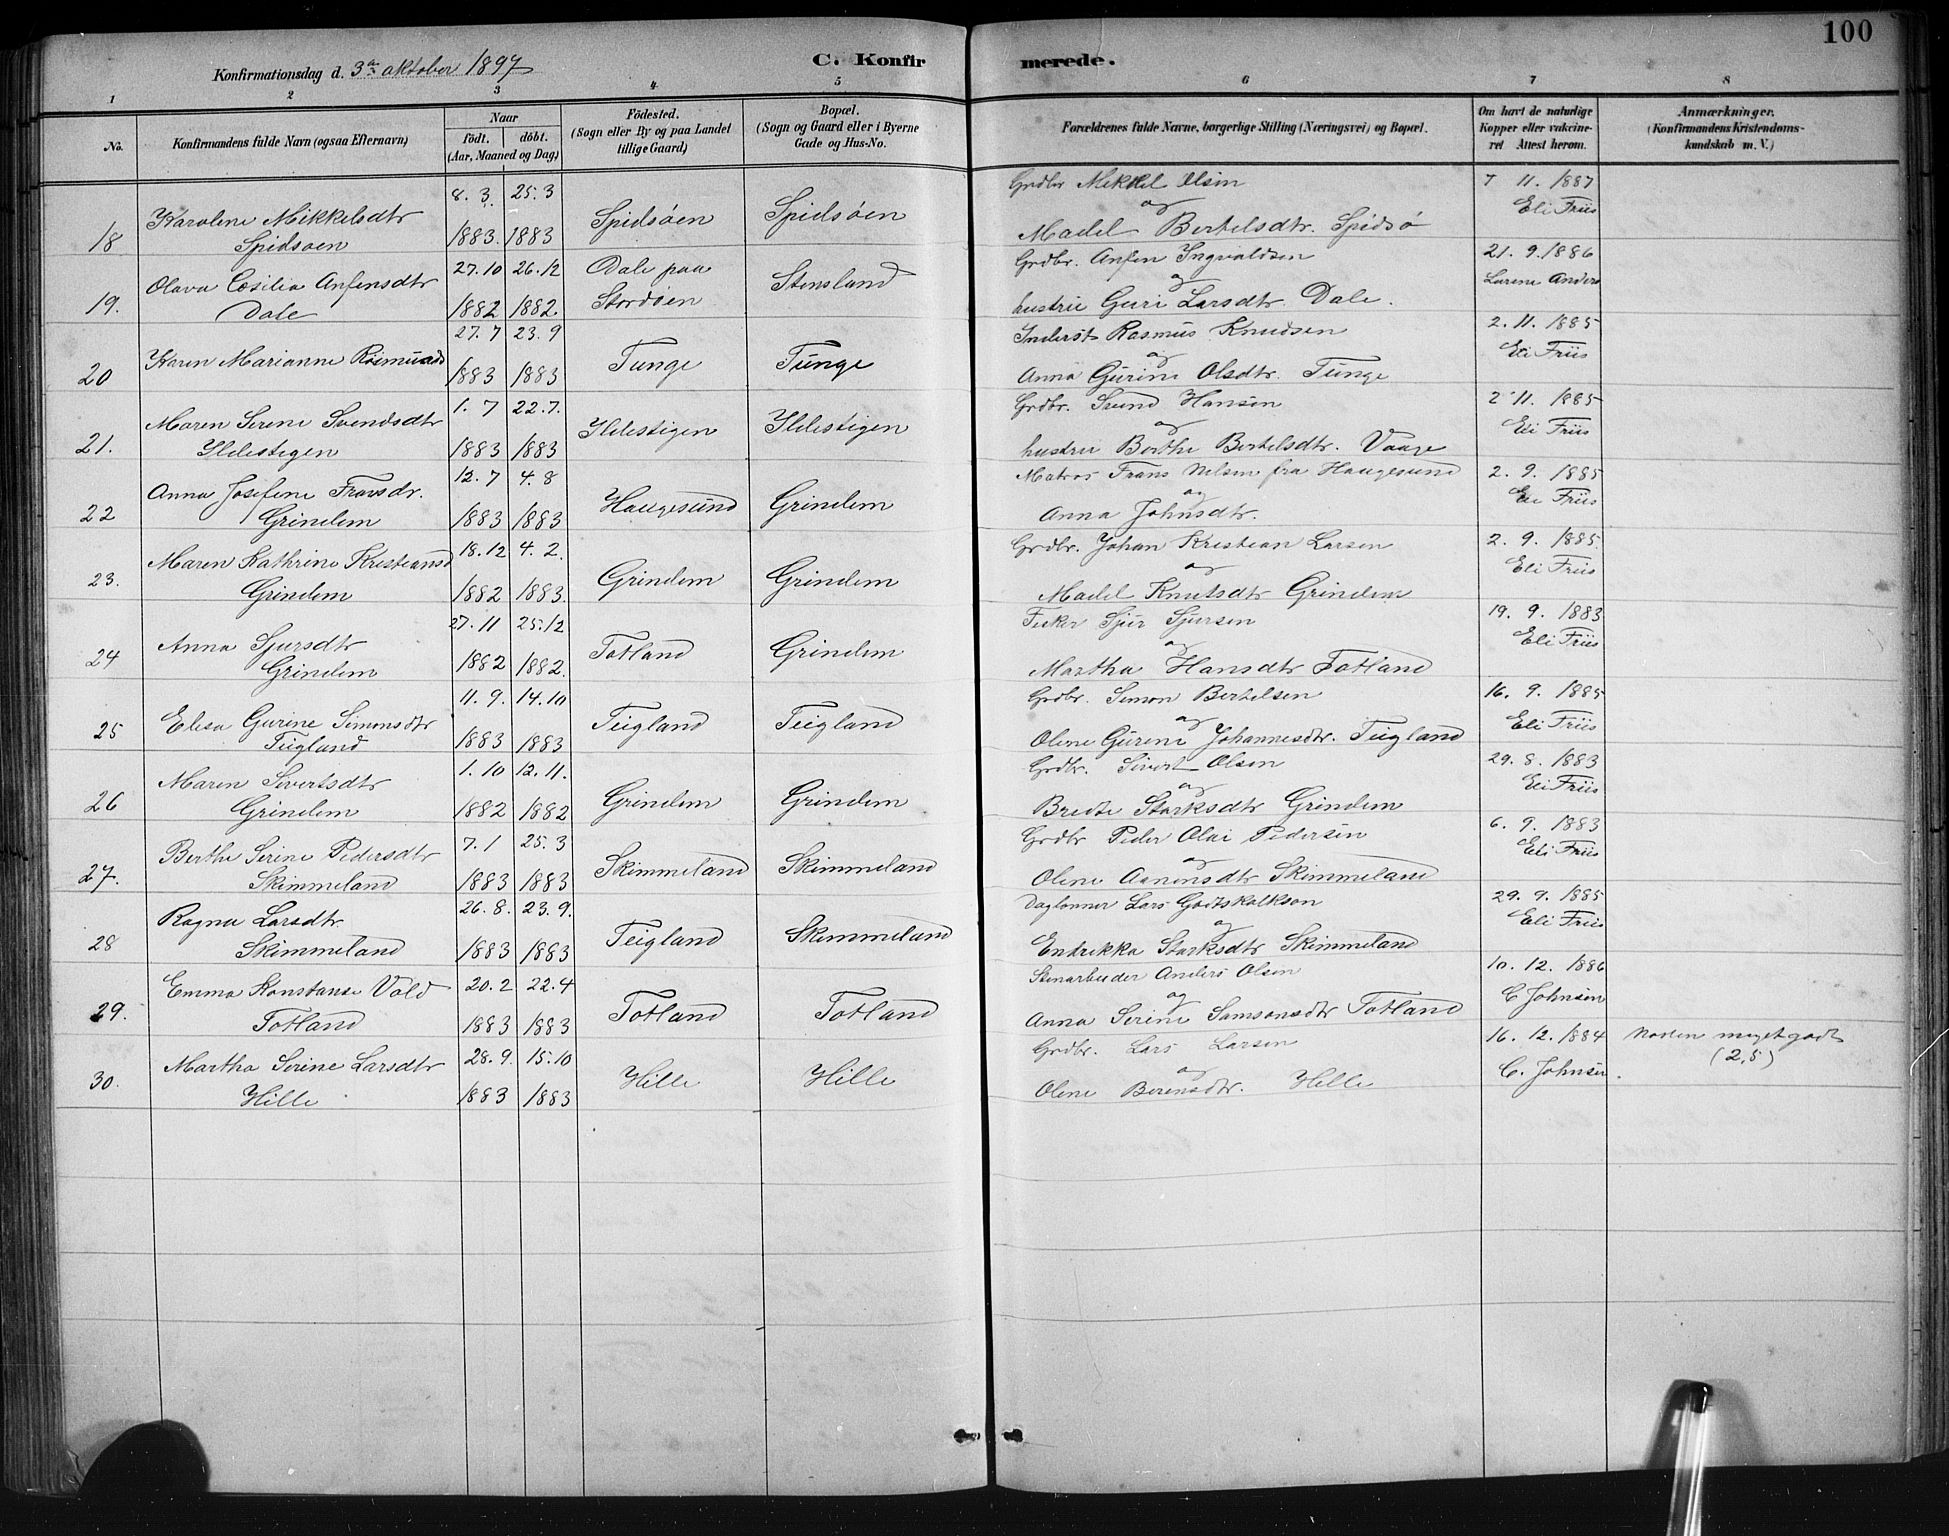 100
Konfirmationsdag d. 3die oktober 1897
C. Konfirmerede.
1 2 3 4 5 6 7 8
No.
Konfirmandens fulde Navn (ogsaa Efternavn)
Naar
födt. döbt.
(Aar, Maaned og Dag)
Födested.
(Sogn eller By og paa Landet
tillige Gaard)
Bopæl.
(Sogn og Gaard eller i Byerne
Gade og Hus-No.
Forældrenes fulde Navne, borgerlige Stilling (Næringsvei) og Bopæl.
Om havt de naturlige
Kopper eller vakcine-
ret Attest herom.
Anmærkninger.
(Konfirmandens Kristendoms-
kundskab m. V.)
8. 3. 25. 3 Grdbr Mikkel Olsen 7 11. 1887
18 Karolene Mikkelsdtr Spidsøen Spidsøen og Eli Friis
Spidsøen 1883. 1883 Madel Bertelsdtr. Spidsø
27. 10 26. 12 Dale paa Grdbr. Anfen Ingvaldsen 21. 9. 1886
19. Olava Cesilia Anfensdtr Stordøen Stensland og Larene Anders
Dale 1882 1882. hustru Guri Larsdtr. Dale.
27. 7 23. 9 Inderst Rasmus Knudsen 2. 11. 1885
20 Karen Marianne Rasmusds Tunge Tunge og Eli Friis
1883 1883 Anna Gurine Olsdtr. Tunge
1. 7 22. 7. Grdbr. Svend Hansen 2 11. 1885
21. Maren Serene Svendsdtr Ildestigen Ildestigen og Eli Friis
Ildestigen 1883 1883 hustru Berthe Bertelsdtr. Vaage
12. 7 4. 8 Matros Frans Nelsen fra Haugesund 2. 9. 1885
22 Anna Josefine Fransdr. Haugesund Grindem og Eli Friis
Grindem 1883 1883 Anna Johnsdtr.
18. 12 4. 2. Grdbr. Johan Kristian Larsen 2. 9. 1885
23. Maren Kathrine Kristiansd Grindem Grindem og Eli Friis
Grindem 1882 1883. Madel Knutsdtr Grindem
27. 11 25. 12 Fisker Sjur Sjursen 19. 9. 1883
24 Anna Sjursdtr Totland Grindem og Eli Friis
Grindem 1882 1882. Martha Hansdtr Totland
11. 9. 14. 10 Grdbr. Simon Bertelsen 16. 9. 1885
25 Elisa Gurine Simonsdtr Teigland Teigland og Eli Friis
Teigland 1883 1883 Olene Gurine Johannesdtr. Teigland
1. 10 12. 11. Grdbr. Sivert Olsen 29. 8. 1883
26 Maren Sivertsdtr Grindem Grindem og Eli Friis
Grindem 1882 1882 Bredte Storksdtr Grindem
7. 1 25. 3 Grdbr Peder Olai Pedersen 6. 9. 1883
27. Berthe Serine Pedersdtr Skimmeland Skimmeland og Eli Friis
Skimmeland 1883 1883 Olene Aanensdtr Skimmeland
26. 8. 23. 9. Daglønner Lars Godtskalkson 29. 9. 1885
28 Ragna Larsdtr. Teigland Skimmeland og Eli Friis
Skimmeland 1883 1883 Endrikka Storksdtr Skimmeland
20. 2 22. 4 Stenarbeider Anders Olsen 10. 12. 1886
29. Emma Konstanse Vold Totland Totland og C Johnsen
Totland 1883 1883 Anna Serine Samsonsdtr Totland
28. 9. 15. 10 Grdbr. Lars Larsen 16. 12. 1884 Noden meget godt
30. Martha Serine Larsdtr Hille Hille og C. Johnsen (2,5)
Hille 1883 1883 Olene Berensdtr. Hille